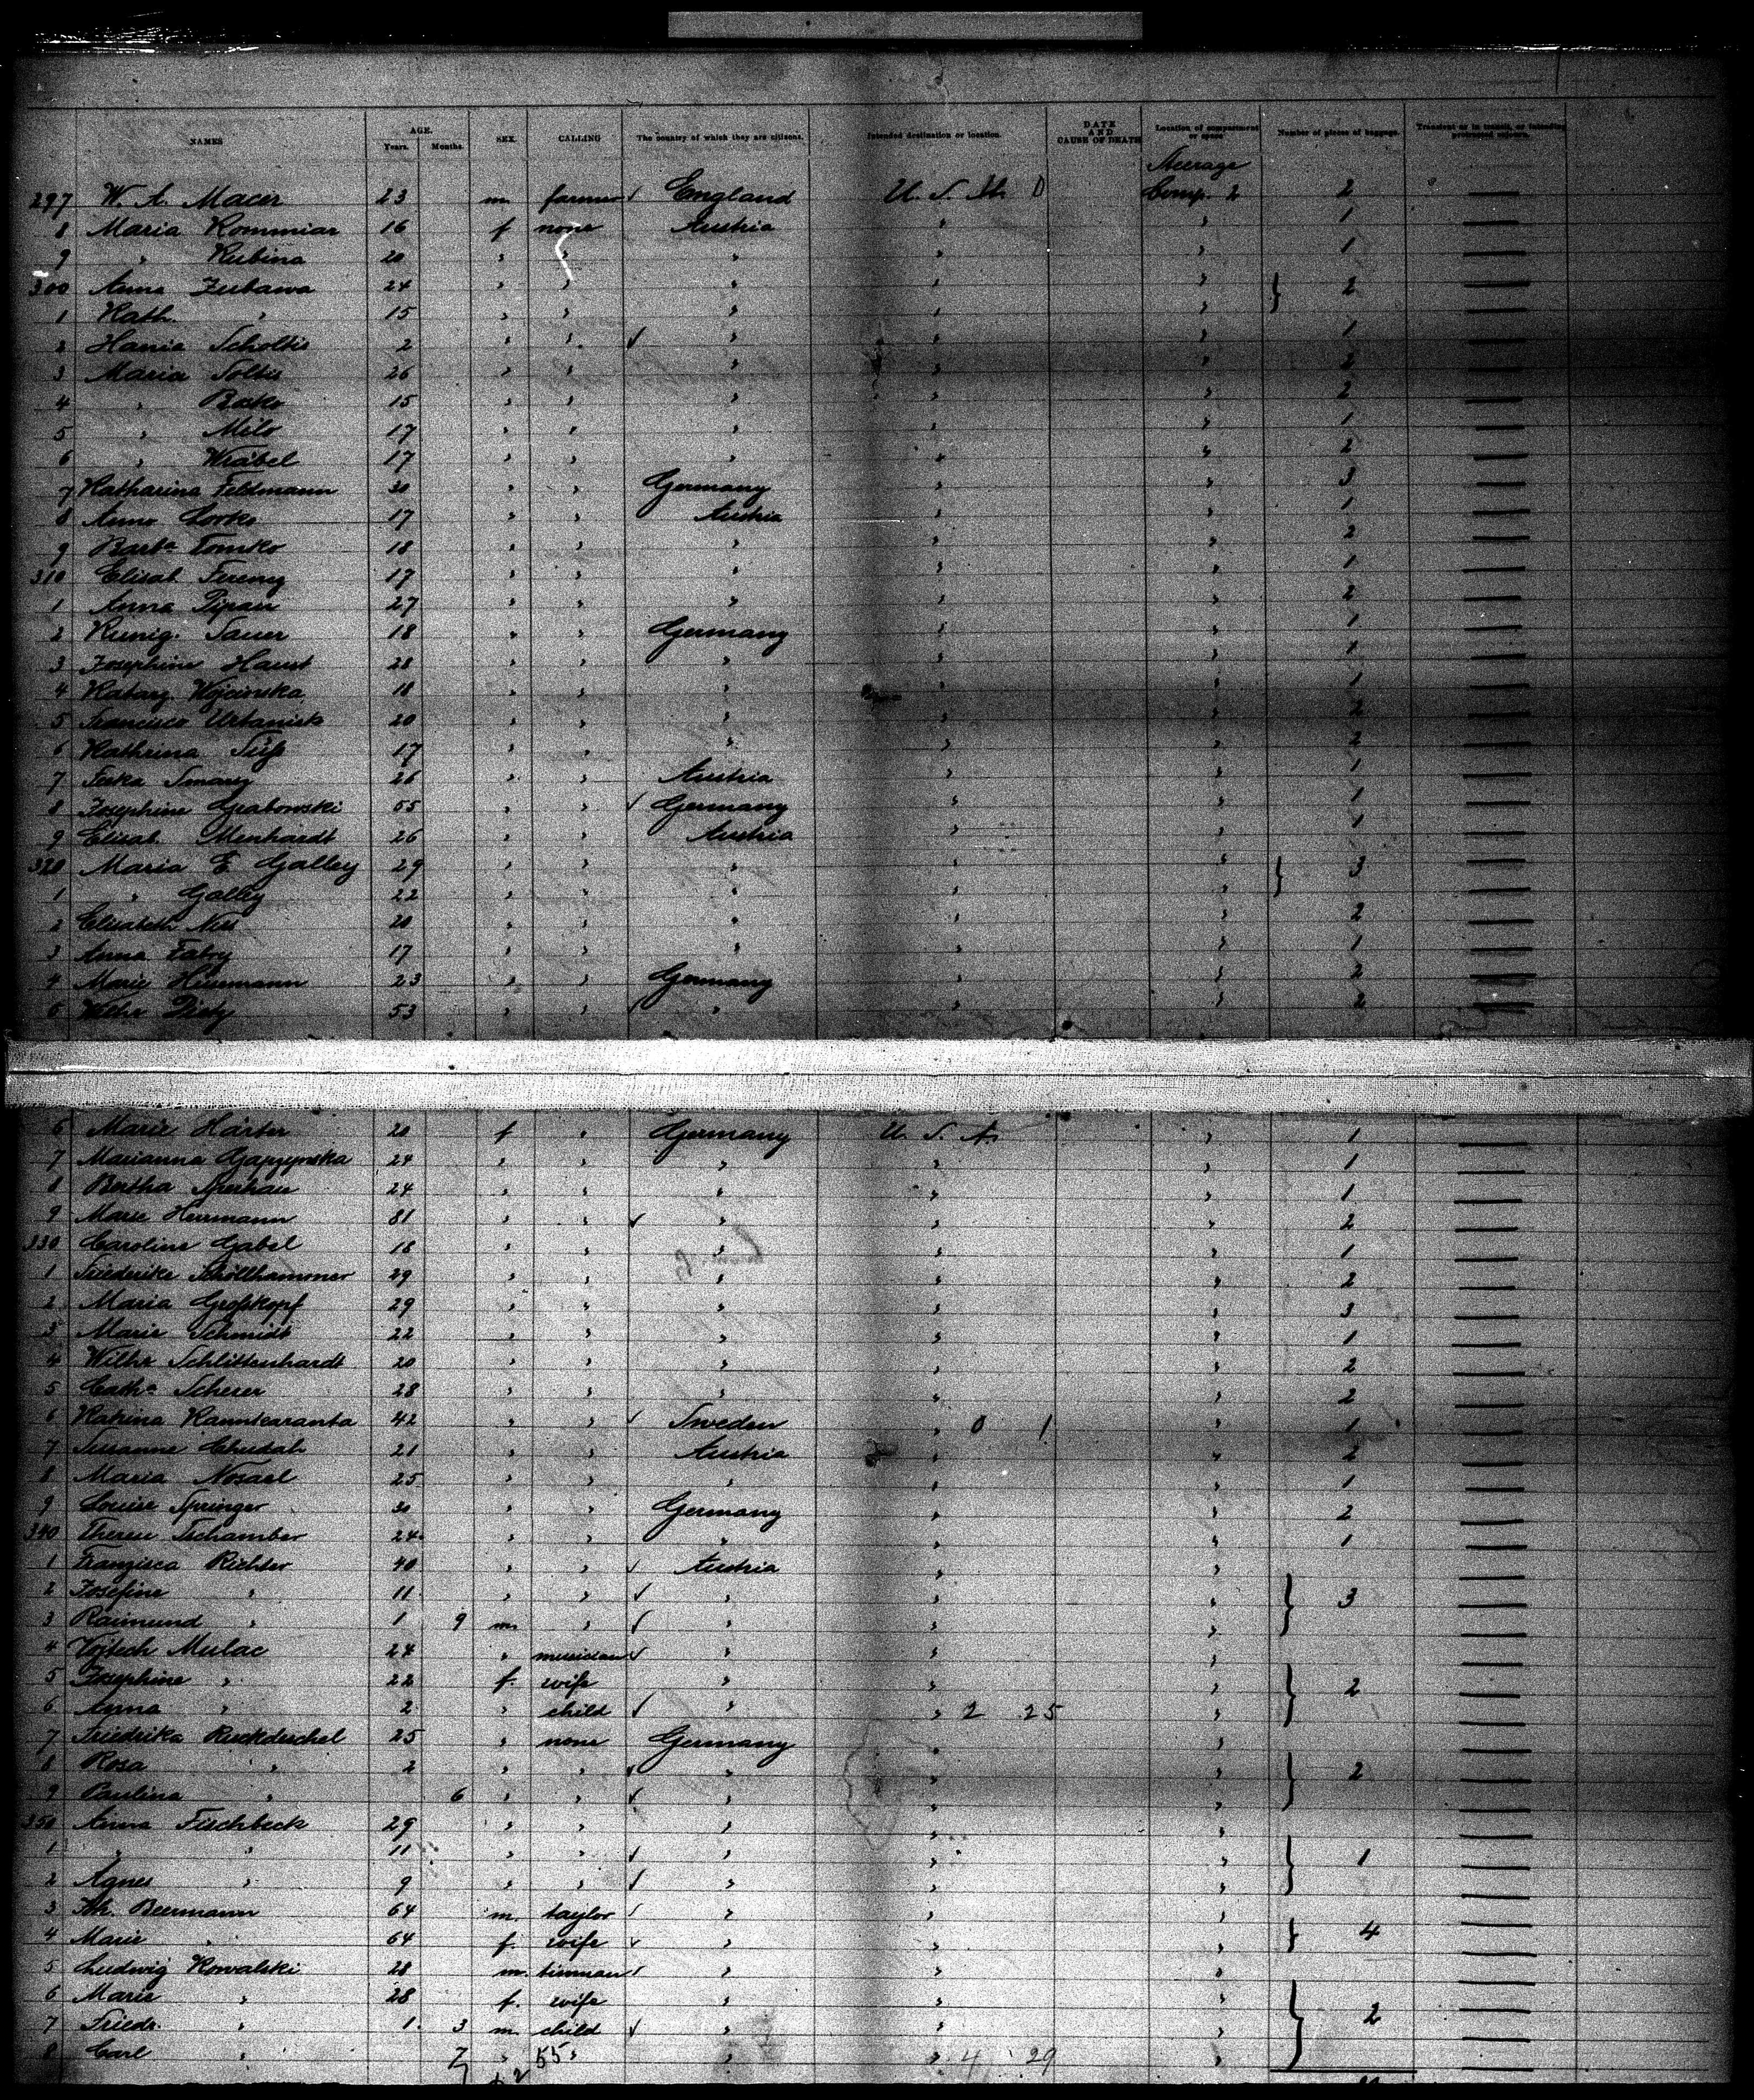 NAMES AGE. Years. Months. SEX. CALLING The country of which they are citizens. Intended destination or location. DATE AND CAUSE OF DEATH Location of compartment or space Number of pieces of baggage. Transient or in transit, or intending protracted sojourn.
Steerage
297 W. A. Macer 23 m. farmer ✓ England U. S. A. 0 Comp. 2 2 —
8 Maria Kommiar 16 f none Austria " " 1 —
9 " Rubina 20 " " " " " 1 —
300 Anna Zubawa 24 " " " " " } 2 —
1 Kath. " 15 " " " " " —
2 Hania Scholtis 2 " " ✓ " " " 1 —
3 Maria Soltis 26 " " " " " 2 —
4 " Batko 15 " " " " " 2 —
5 " Milo 17 " " " " " 1 —
6 " Wrabel 17 " " " " " 2 —
7 Katharina Feldmann 30 " " Germany " " 3 —
8 Anna Lorko 17 " " Austria " " 1 —
9 Barba Tomko 18 " " " " " 2 —
310 Elisab. Ferenz 17 " " " " " 1 —
1 Anna Pipan 27 " " " " " 2 —
2 Kunig. Sauer 18 " " Germany " " 1 —
3 Josephine Haust 28 " " " " " 1 —
4 Katarz Wojcinska 18 " " " " " 1 —
5 Francisca Urbaniak 20 " " " " " 2 —
6 Kathrina Süß 17 " " " " " 2 —
7 26 " " Austria " " 1 —
8 Josephine Grabowski 55 " " ✓ Germany " " 1 —
9 Elisab. Menhardt 26 " " Austria " " 1 —
320 Maria E. Galley 29 " " " " " } 3 —
1 " Galley 22 " " " " " —
2 Elisabeth Niss 20 " " " " " 2 —
3 Anna Fabry 17 " " " " " 1 —
4 Marie Heumann 23 " " Germany " " 2 —
5 Wilhe Dietz 53 " " ✓ " " " 2 —
6 Marie Härter 20 f " Germany U. S. A. " 1 —
7 Marianna Gapzynska 24 " " " " " 1 —
8 Bertha Sperhau 24 " " " " " 1 —
9 Marie Herrmann 81 " " ✓ " " " 2 —
330 Caroline Gabel 18 " " " " " 1 —
1 Friederike Schöllhammer 29 " " " " " 2 —
2 Maria Großkopf 29 " " " " " 3 —
3 Marie Schmidt 22 " " " " " 1 —
4 Wilhe Schlittenhardt 20 " " " " " 2 —
5 Catha Scherer 28 " " " " " 2 —
6 Katrina Kauntaranta 42 " " ✓ Sweden " 0 1 " 1 —
7 Susanne Chudah 21 " " Austria " " 2 —
8 Maria Nosael 25 " " " " " 1 —
9 Louise Springer 30 " " Germany " " 2 —
340 Therese Tschamber 24 " " " " " 1 —
1 Franzisca Richter 40 " " ✓ Austria " " —
2 Josefine " 11 " " ✓ " " " } 3 —
3 Raimund " 1 9 m. " ✓ " " " —
4 Vojtech Mulac 24 " musician ✓ " " " —
5 Josephine " 22 f. wife " " " } 2 —
6 Anna " 2 " child ✓ " " 2 25 " —
7 Friedrika Ruckdeschel 25 " none Germany " " —
8 Rosa " 2 " " ✓ " " " } 2 —
9 Paulina " 6 " " ✓ " " " —
350 Anna Fischbeck 29 " " " " " —
1 " " 11 " " ✓ " " " } 1 —
2 Agnes " 9 " " ✓ " " " —
3 Beermann 64 m. taylor ✓ " " " } 4 —
4 Marie " 64 f. wife ✓ " " " —
5 Ludwig Kowalski 28 m. tinman ✓ " " " —
6 Marie " 28 f. wife " " " } 2 —
7 Friedr. " 1 3 m. child ✓ " " " —
8 Carl " 7 " 55 " " " 4 29 " —